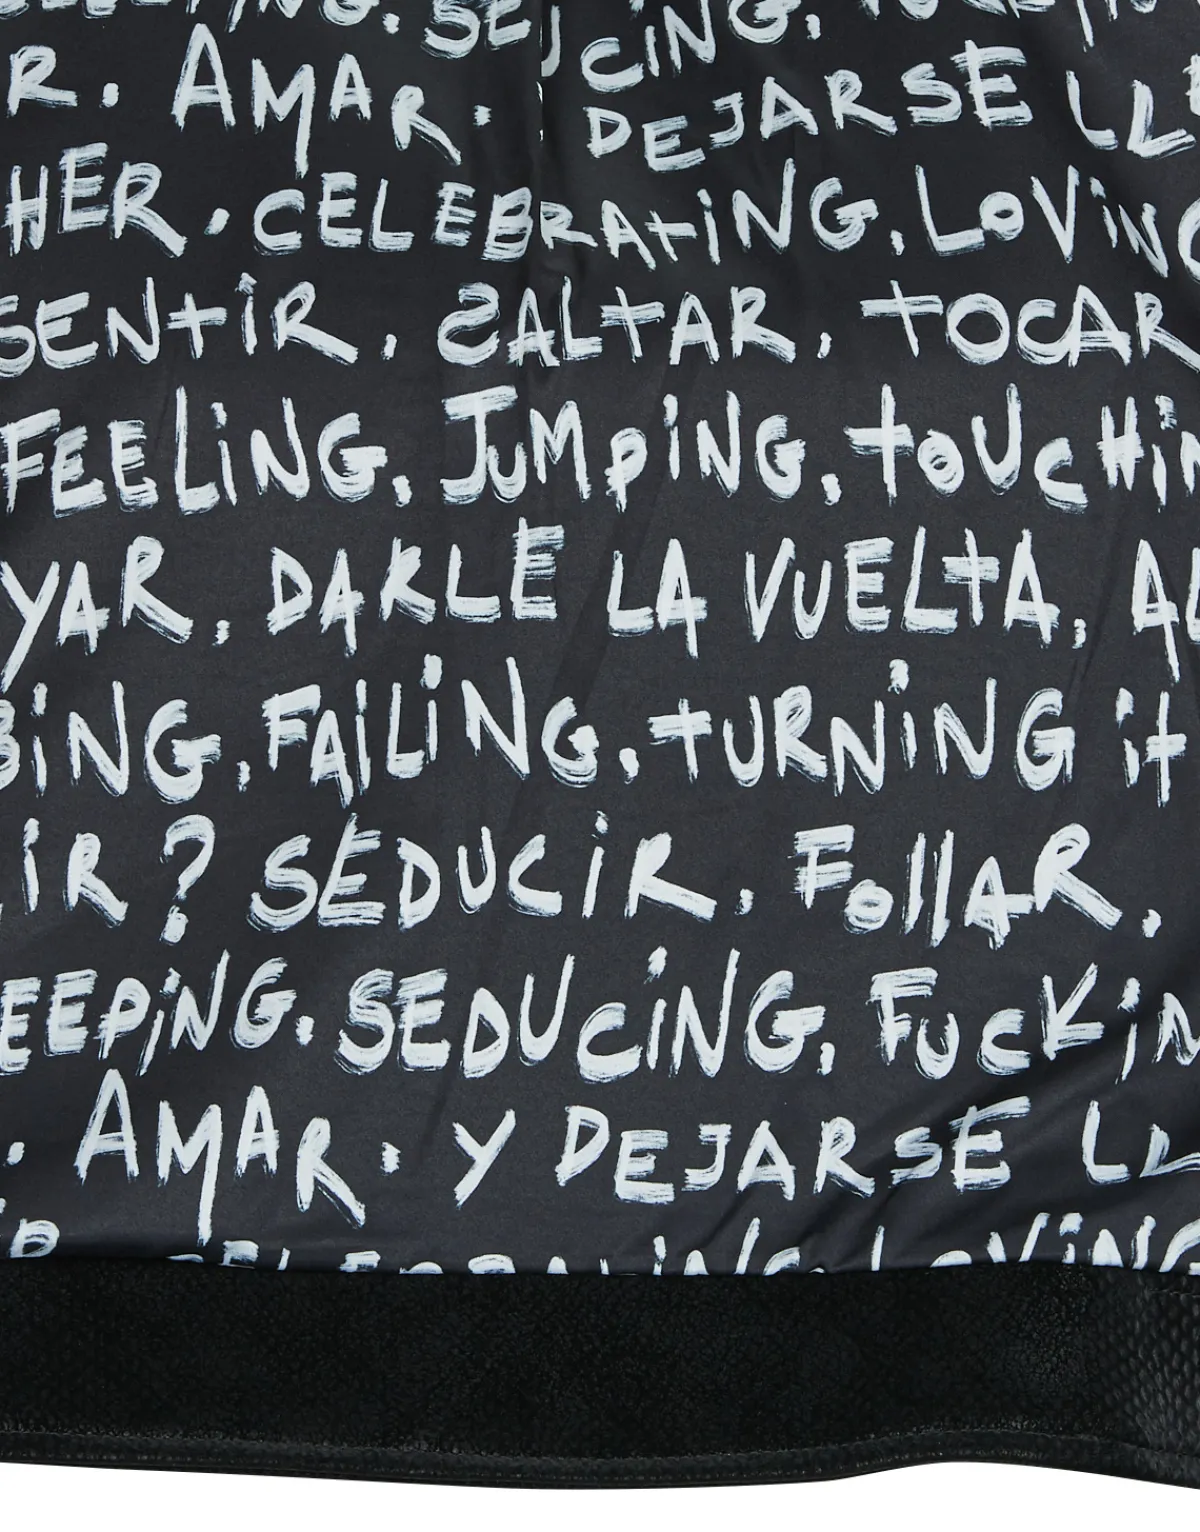 SEDUCING,
R. AMAR. DEJARSE LL
HER. CELEBRATING, LOVING
SENTIR, SALTAR, TOCAR
FEELING, JUMPING, TOUCHIN
YAR, DARLE LA VUELTA, AL
BING, FAILING, TURNING IT
IR? SEDUCIR, FOLLAR,
EEPING, SEDUCING, FUCKIN
. AMAR. Y DEJARSE LL
CELEBRATING, LOVING